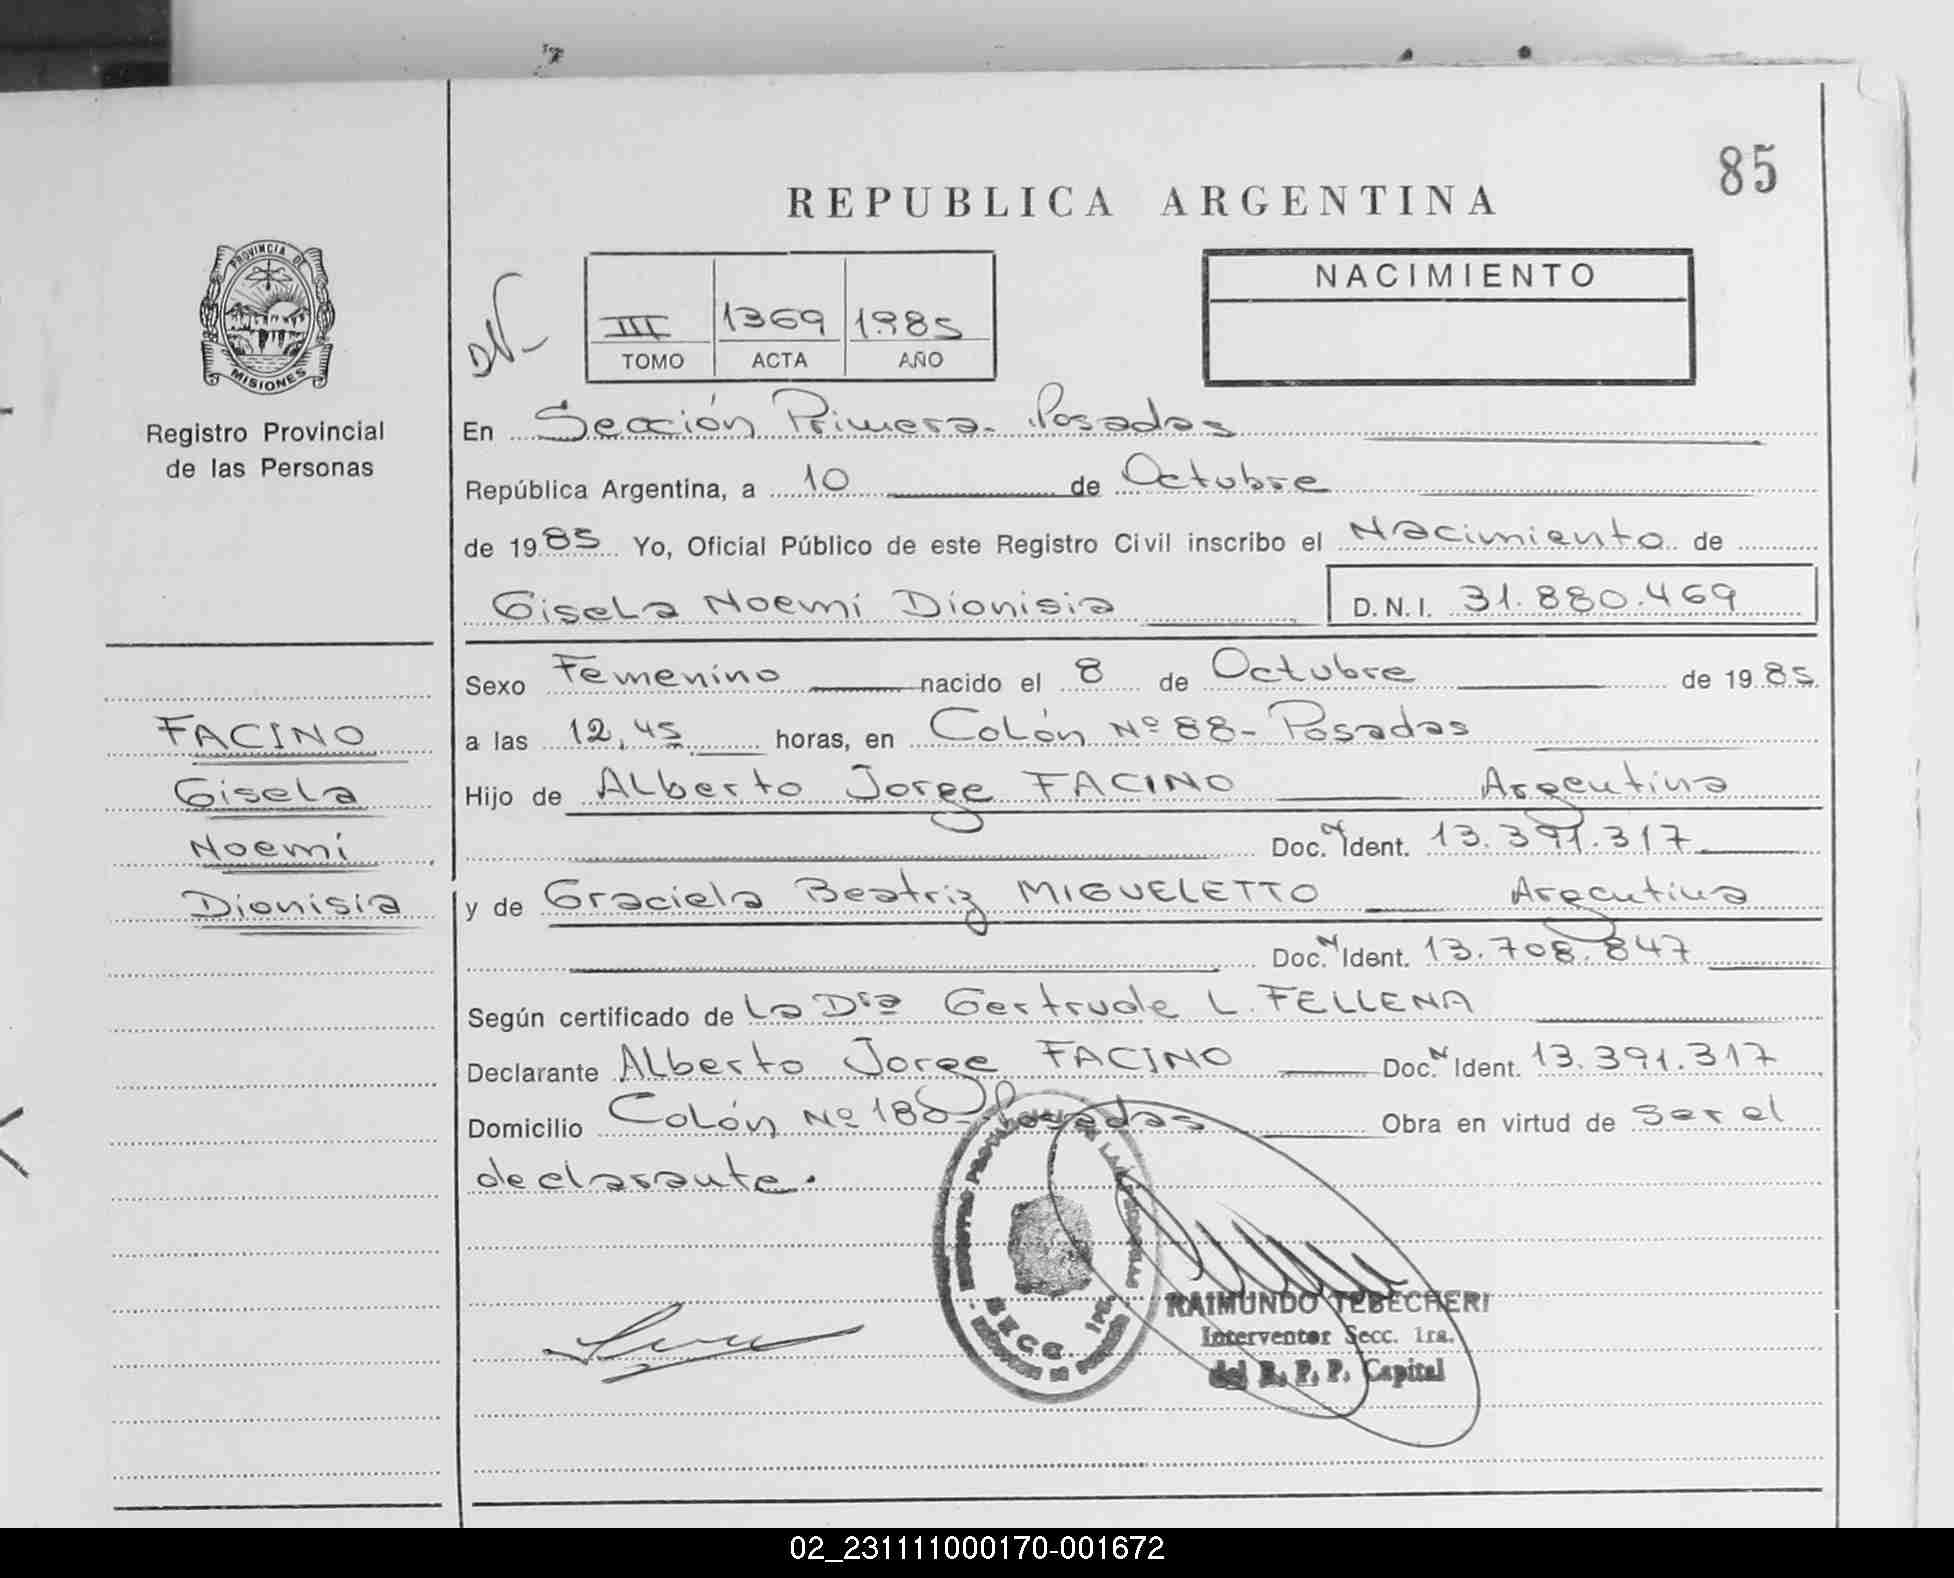 85
REPUBLICA ARGENTINA
PROVINCIA DE
MISIONES
Registro Provincial
de las Personas
III 1369 1985
TOMO ACTA AÑO
NACIMIENTO
En Sección Primera - Posadas
República Argentina, a 10 de Octubre
de 1985 Yo, Oficial Público de este Registro Civil inscribo el Nacimiento de
Gisela Noemí Dionisia D.N.I. 31.880.469
Sexo Femenino nacido el 8 de Octubre de 1985
a las 12,45 horas, en Colón Nº 88 - Posadas
Hijo de Alberto Jorge FACINO Argentina
Doc. N Ident. 13.391.317
y de Graciela Beatriz MIGUELETTO Argentina
Doc. N Ident. 13.708.847
Según certificado de La Dra Gertrude L. FELLENA
Declarante Alberto Jorge FACINO Doc. N Ident. 13.391.317
Domicilio Colón Nº 188 - Posadas Obra en virtud de ser el
declarante.
FACINO
Gisela
Noemí
Dionisia
RAIMUNDO TEBECHERI
Interventor Secc. 1ra.
del R. P. P. Capital
02_231111000170-001672